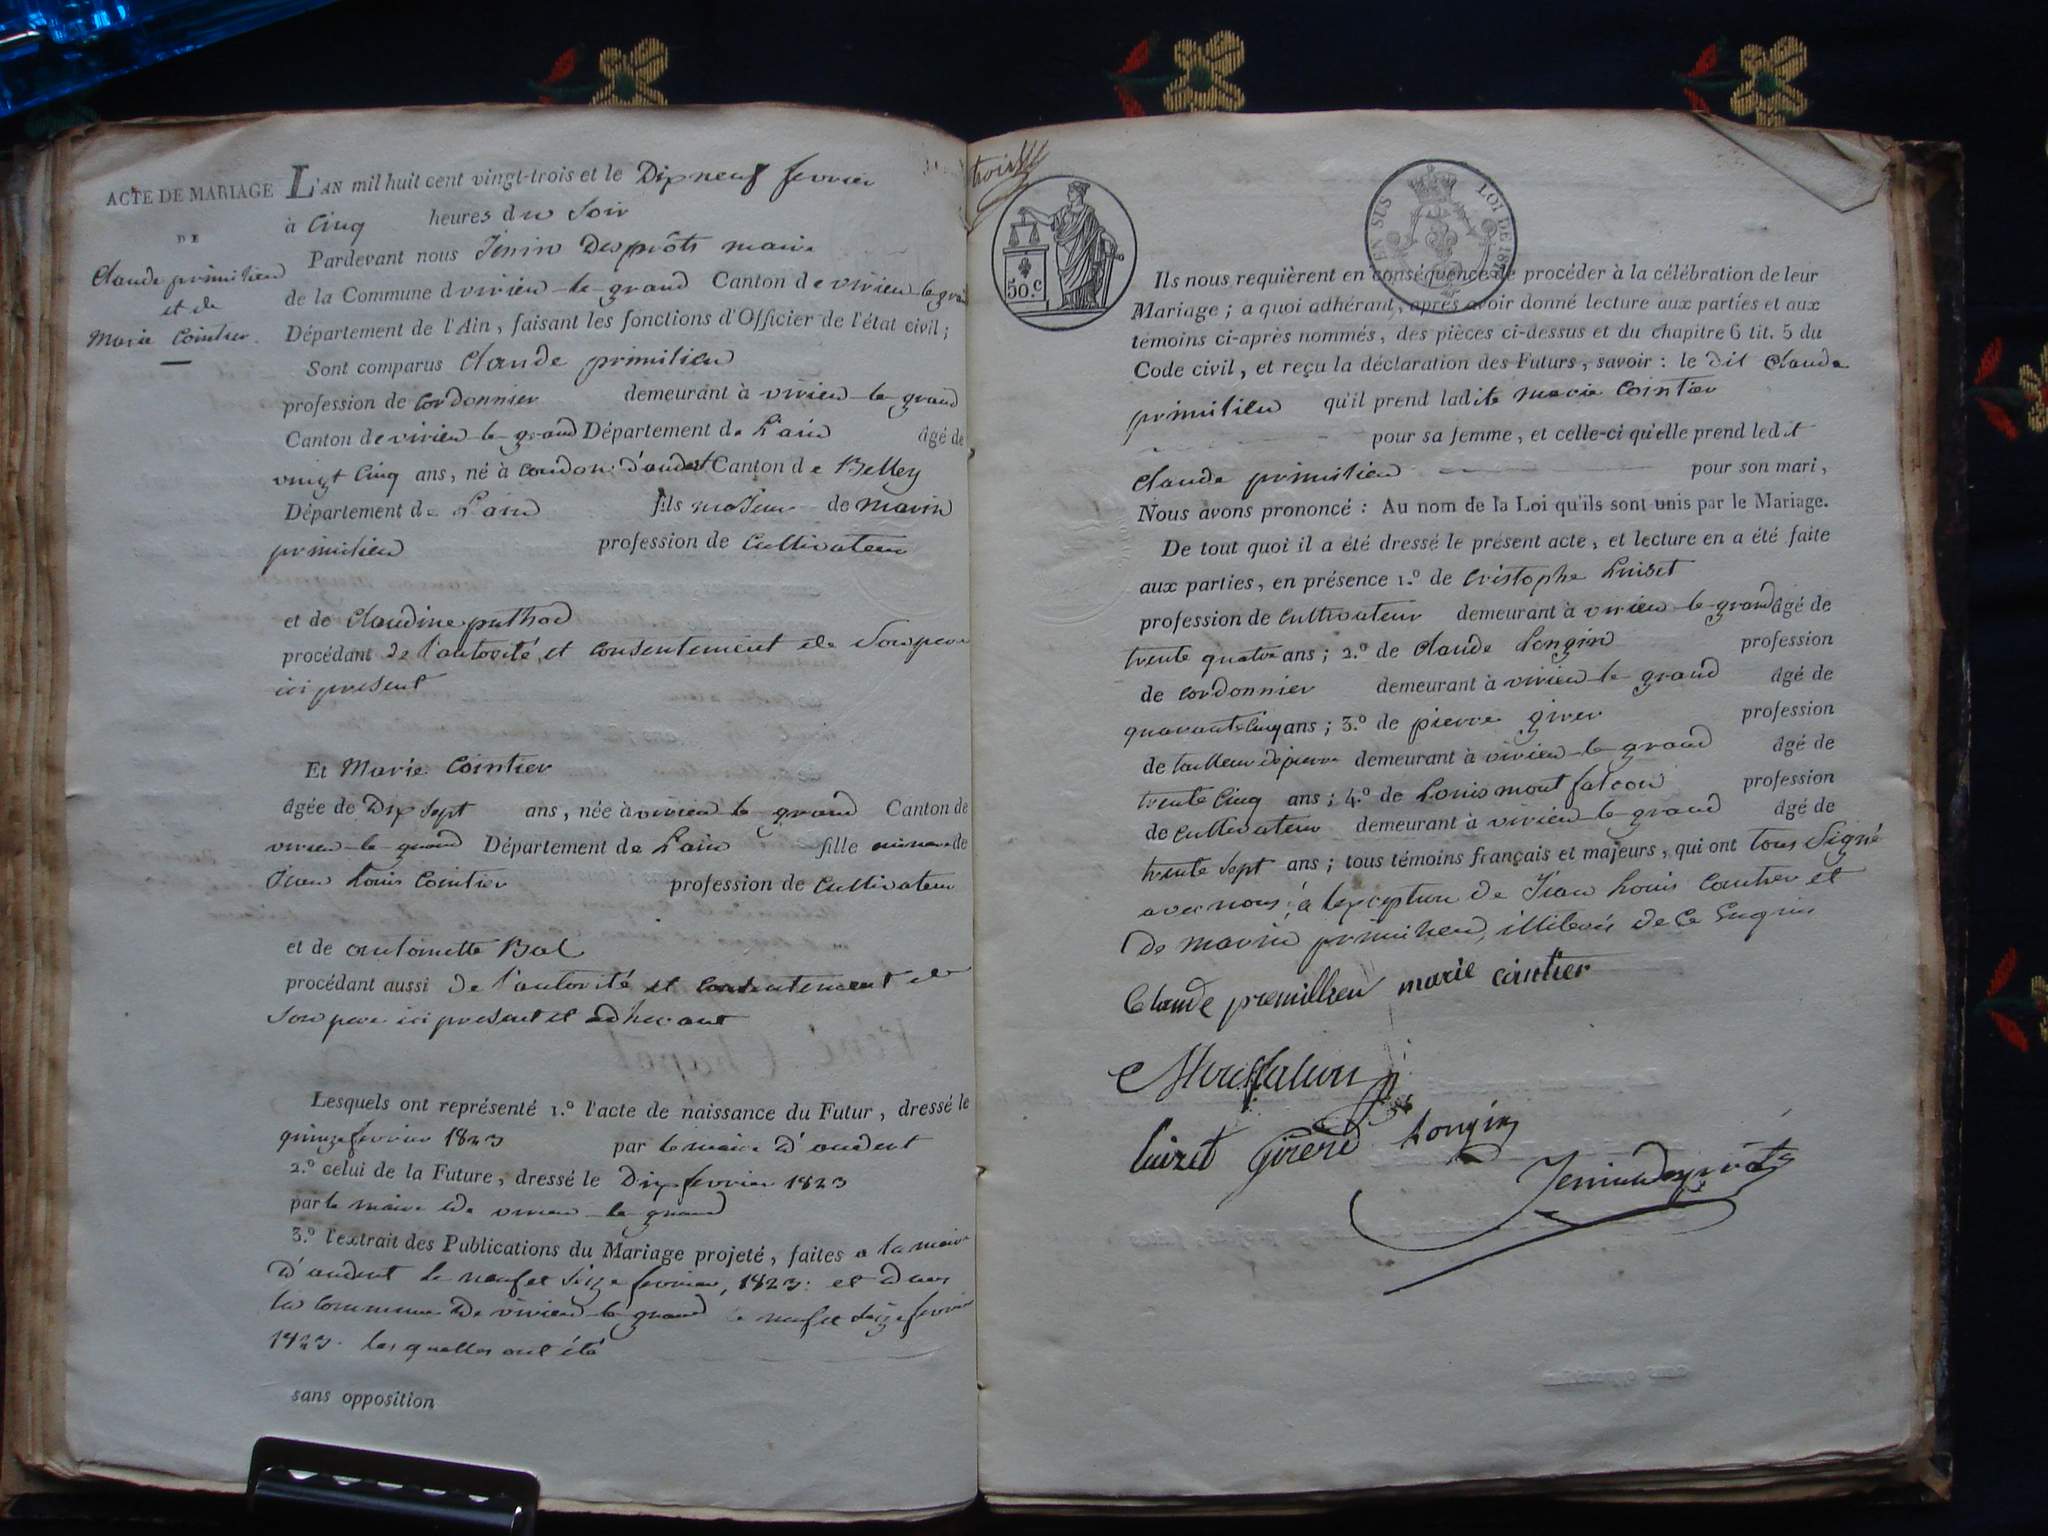 ACTE DE MARIAGE
DE
Claude primilieu
et de
Marie Cointier.
L'AN mil huit cent vingt-trois et le Dix neuf fevrier
à Cinq heures du Soir
Pardevant nous Jenin Desprôts maire
de la Commune d virieu-le-grand Canton de virieu-le-grand
Département de l'Ain, faisant les fonctions d'Officier de l'état civil;
Sont comparus Claude primilieu
profession de Cordonnier demeurant à virieu-le-grand
Canton de virieu-le-grand Département de L'ain âgé de
vingt Cinq ans, né à d'andert Canton de Belley
Département de L'ain fils majeur de marin
primilieu profession de Cultivateur
et de Claudine puthod
procédant de l'autorité et consentement de Son pere
ici present
Et Marie Cointier
âgée de Dix Sept ans, née à virieu le grand Canton de
virieu-le-grand Département de L'ain fille mineure de
Jean Louis Cointier profession de Cultivateur
et de antoinette Bal
procédant aussi de l'autorité et consentement de
Son pere ici present et adherant
Lesquels ont représenté 1.º l'acte de naissance du Futur, dressé le
quinze fevrier 1823 par le maire d'andert
2.º celui de la Future, dressé le Dix fevrier 1823
par le maire de virieu-le-grand
3.º l'extrait des Publications du Mariage projeté, faites a la mairie
d'andert le neuf et Seize fevrier, 1823. et dans
la commune De virieu-le-grand le neuf et Seize fevrier
1823. lesquelles ont été
sans opposition
trois
50.C
EN SUS
LOI DE
Ils nous requièrent en conséquence de procéder à la célébration de leur
Mariage; a quoi adhérant, après avoir donné lecture aux parties et aux
témoins ci-après nommés, des pièces ci-dessus et du chapitre 6 tit. 5 du
Code civil, et reçu la déclaration des Futurs, savoir: le dit Claude
primilieu qu'il prend ladite marie Cointier
pour sa femme, et celle-ci qu'elle prend ledit
Claude primilieu pour son mari,
Nous avons prononcé: Au nom de la Loi qu'ils sont unis par le Mariage.
De tout quoi il a été dressé le présent acte, et lecture en a été faite
aux parties, en présence 1.º de Cristophe Luiset
profession de Cultivateur demeurant à virieu-le-grand âgé de
trente quatre ans; 2.º de Claude Longin profession
de Cordonnier demeurant à virieu-le-grand âgé de
quarante Cinq ans; 3.º de pierre girer profession
de tailleur de pierre demeurant à virieu-le-grand âgé de
trente Cinq ans; 4.º de Louis mont falcon profession
de Cultivateur demeurant à virieu-le-grand âgé de
trente Sept ans; tous témoins français et majeurs, qui ont tous Signé
avec nous, à l'exception de Jean Louis Cointier et
De marin primilieu, illiterés de ce Enquis
Claude premillieu marie cointier
Montfalcon
luizet Girerd Longin
Jenin Desprôts